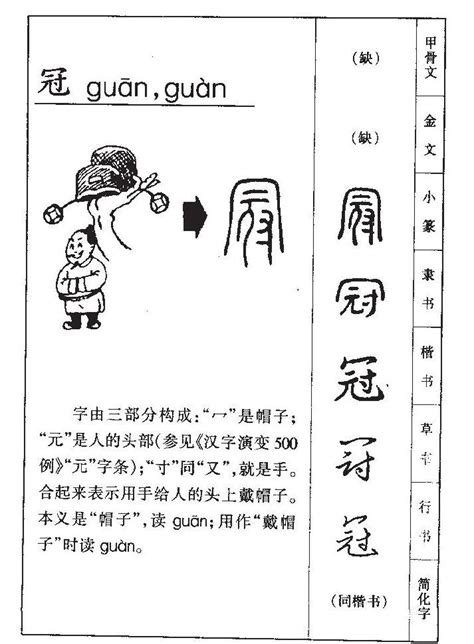 冠 guān,guàn
字由三部分构成:“冖”是帽子;
“元”是人的头部(参见《汉字演变500
例》“元”字条);“寸”同“又”,就是手。
合起来表示用手给人的头上戴帽子。
本义是“帽子”,读 guān;用作“戴帽
子”时读 guàn。
(缺) 甲骨文
(缺) 金文
冠 小篆
冠 隶书
冠 楷书
冠 草书
冠 行书
(同楷书) 简化字